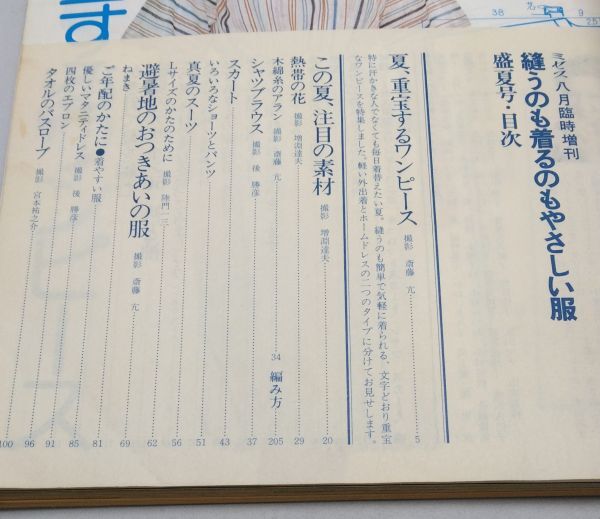 ミセス八月臨時増刊
縫うのも着るのもやさしい服
盛夏号・目次
夏、重宝するワンピース 撮影 斎藤 亢 5
特に汗かきな人でなくても毎日着替えたい夏。縫うのも簡単で気軽に着られる、文字どおり重宝
なワンピースを特集しました。軽い外出着とホームドレスの二つのタイプに分けてお見せします。
この夏、注目の素材 撮影 増淵達夫 20
熱帯の花 撮影 増淵達夫 29
木綿糸のアラン 撮影 斎藤 亢 34 編み方 205
シャツブラウス 撮影 後 勝彦 37
スカート 43
いろいろなショーツとパンツ 51
真夏のスーツ 56
Lサイズのかたのために 撮影 陸門一三 62
避暑地のおつきあいの服 撮影 斎藤 亢 69
ねまき 81
ご年配のかたに●着やすい服 85
優しいマタニティドレス 撮影 後 勝彦 91
四枚のエプロン 96
タオルのバスローブ 撮影 宮本祐之介 100
す
38
9
25